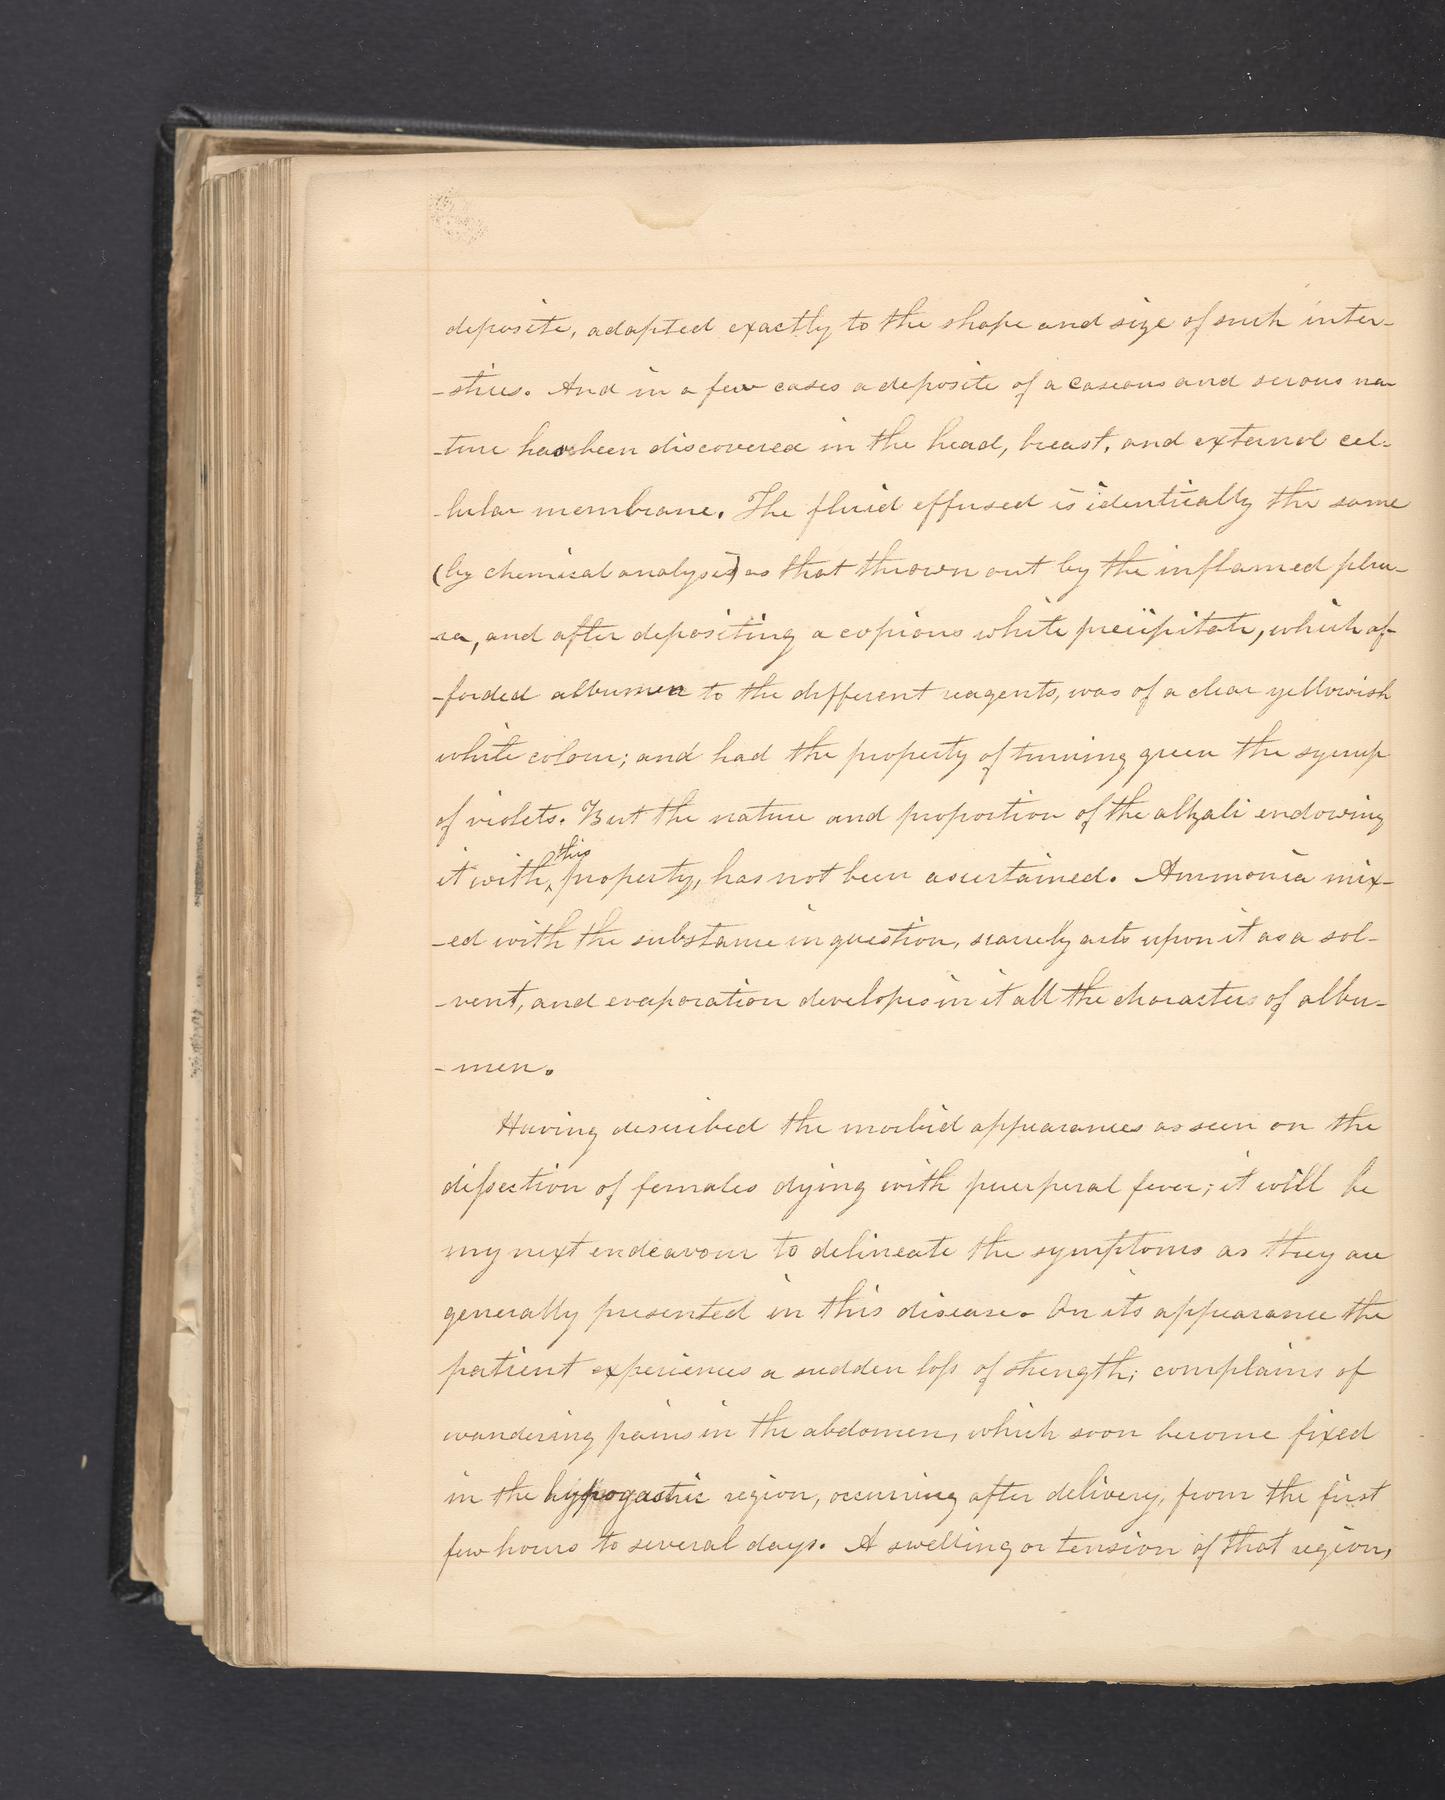 deposite, adapted exactly to the shape and size of such inter-
-stices. And in a few cases a deposite of a caseous and serous na-
-ture has been discovered in the head, breast, and external cel-
-lular membrane. The fluid effused is identically the same
(by chemical analysis) as that thrown out by the inflamed pleu-
-ra, and after depositing a copious white precipitate, which af-
-forded albumen to the different reagents, was of a clear yellowish
white colour; and had the property of turning green the syrup
of violets. But the nature and proportion of the alkali endowing
it with ^this property, has not been ascertained. Ammonia mix-
-ed with the substance in question, scarcely acts upon it as a sol-
-vent, and evaporation developes in it all the characters of albu-
-men.
Having described the morbid appearances as seen on the
dissection of females dying with puerperal fever; it will be
my next endeavour to delineate the symptoms as they are
generally presented in this disease. On its appearance the
patient experiences a sudden loss of strength; complains of
wandering pains in the abdomen, which soon become fixed
in the hypogastric region, occurring after delivery, from the first
few hours to several days. A swelling or tension of that region,